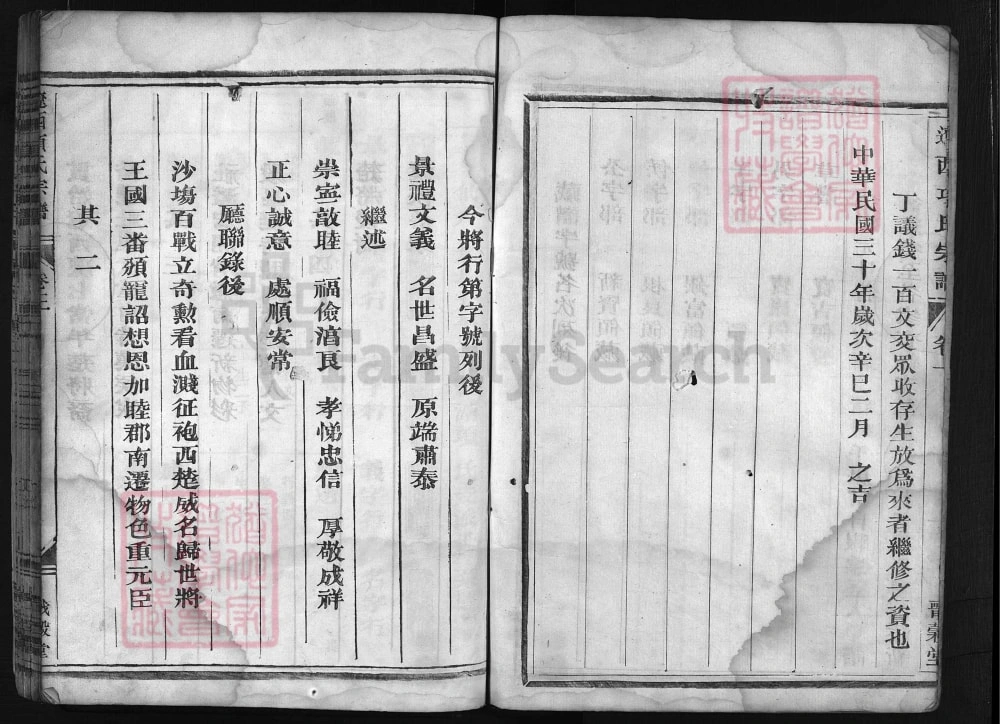 丁議錢一百文交眾收存生放爲來者繼修之資也
中華民國三十年歲次辛巳二月 之吉
今將行第字號列後
景禮文義 名世昌盛 原端肅泰
繼述
崇寧敦睦 福儉湻良 孝悌忠信 厚敬成祥
正心誠意 處順安常
廳聯錄後
沙塲百戰立奇勳看血濺征袍西楚威名歸世將
王國三番頒寵詔想恩加睦郡南遷物色重元臣
其二
FamilySearch